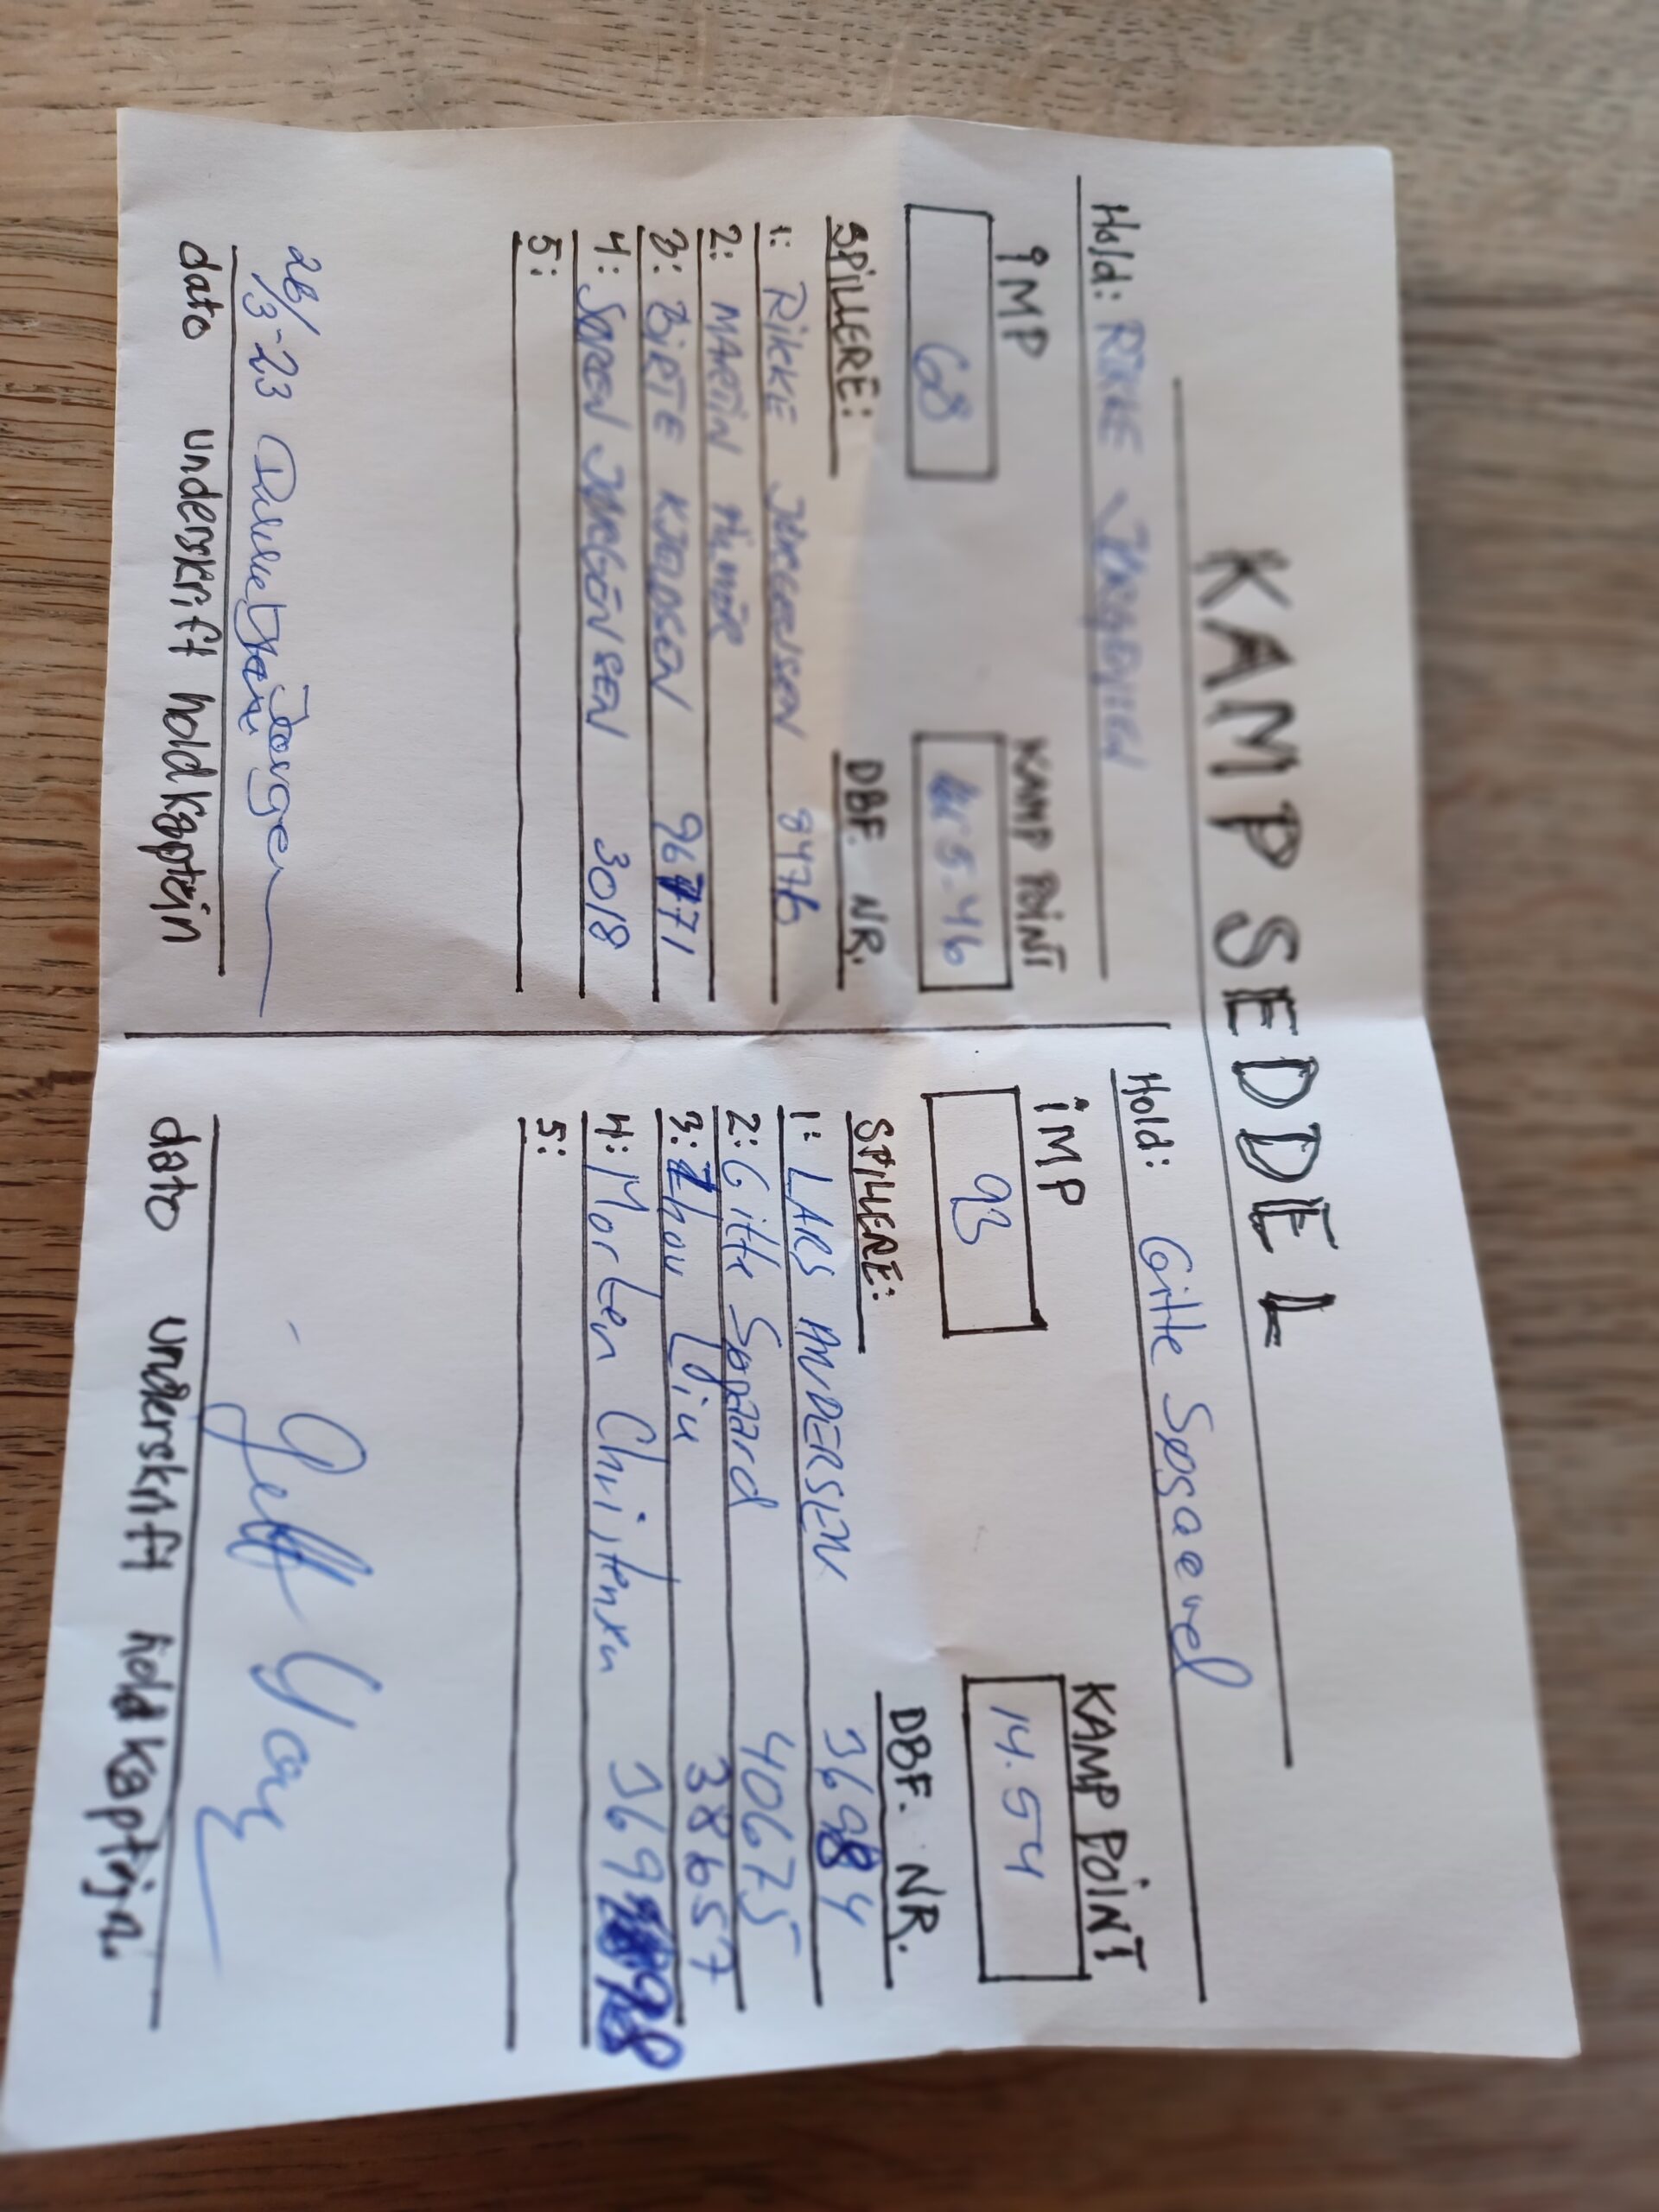 KAMPSEDDEL
Hold: RIKKE JØRGENSEN
IMP
KAMP POINT
68
5.46
SPILLERE:
DBF. NR.
1: RIKKE JØRGENSEN 8476
2: MARTIN
3: BIRTE KJELDSEN 96771
4: SØREN JØRGENSEN 3018
5:
26/3-23
dato underskrift holdkaptein
Hold: Gitte Søgaard
IMP
KAMP POINT
93
14.54
SPILLERE:
DBF. NR.
1: LARS ANDERSEN 36984
2: Gitte Søgaard 40675
3: Zhou Liu 38657
4: Morten Christensen
5:
dato underskrift holdkaptejn.